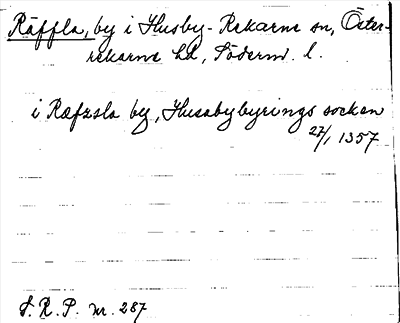 Räffla, by i Husby-Rekarne sn, Öster-
rekarne hd, Söderm. l.
i Ræfzsla by, Husabybyrings socken
27/1 1357
S. R. P. nr. 287